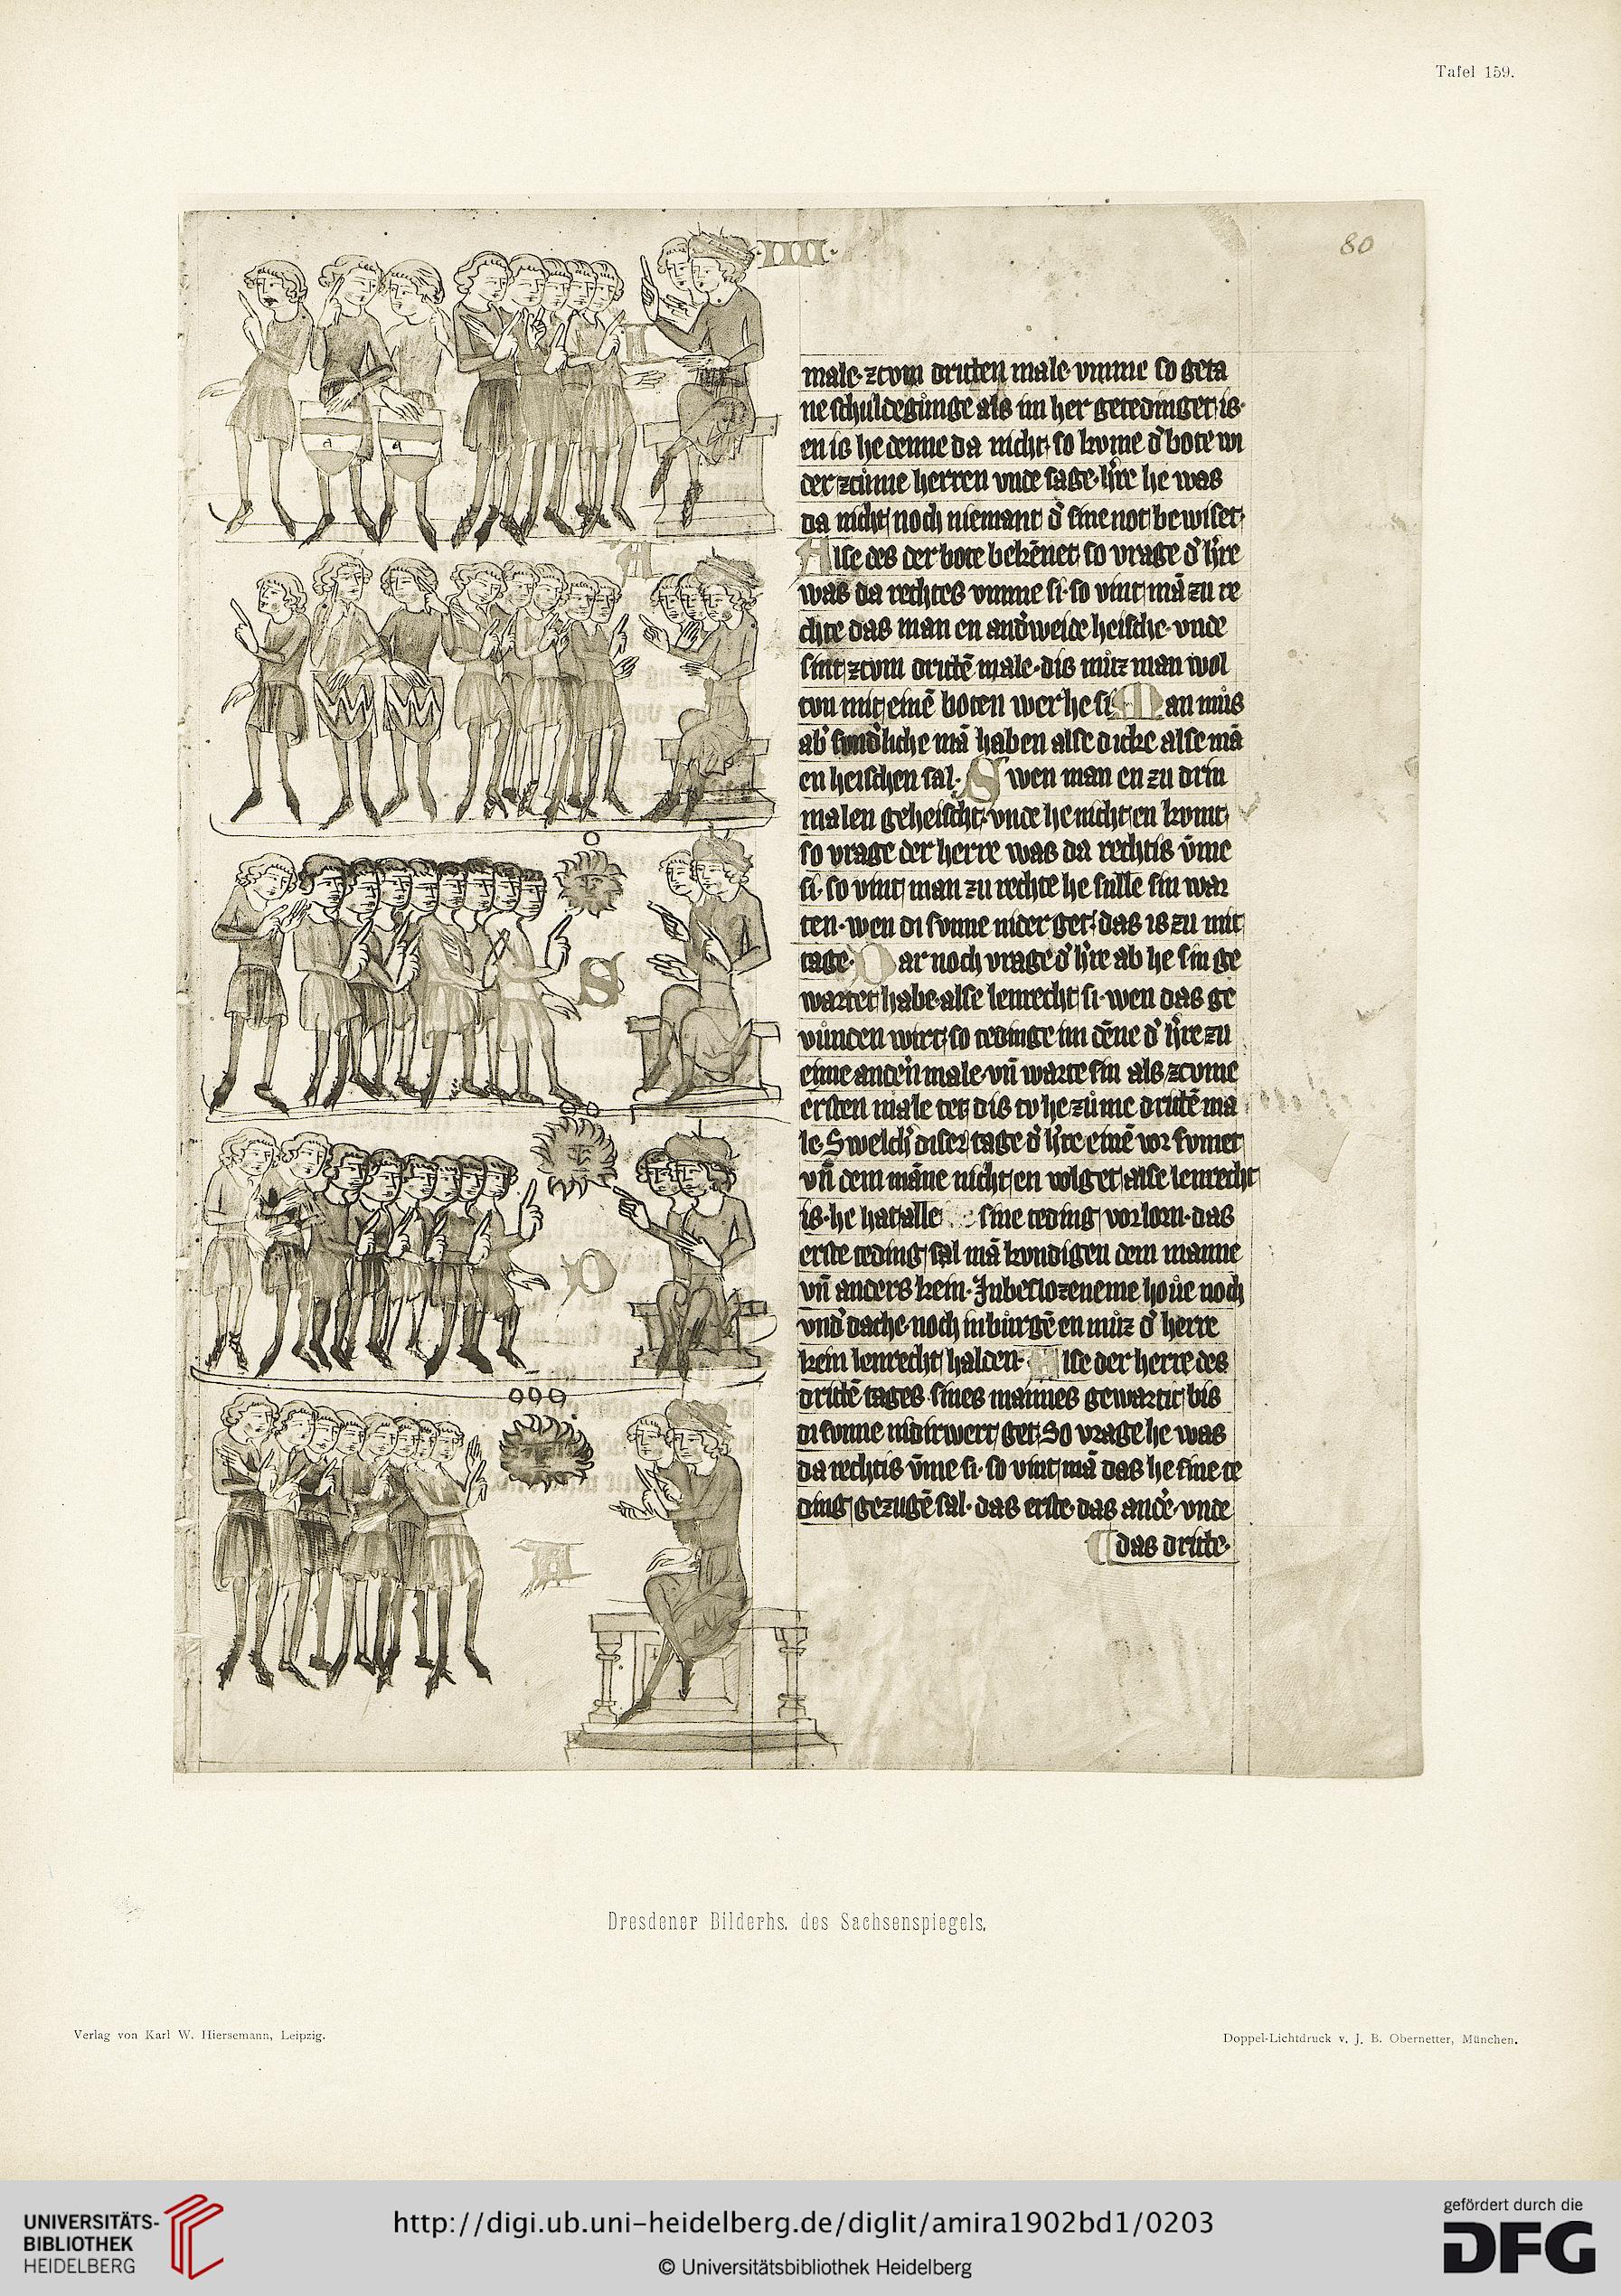 Tafel 159.
·IIII·
80
male· zcvm dritten male· vmme so geta
ne schuldegůnge als im her geredinget is·
en is he denne da nicht· so kome d' bote wi
der zcůme herren vnde sage· h're he was
da nicht noch niemant d' sine not bewiset·
A
Alse des der bote bekēnet· so vrage d' h're
was da rechtes vmme si· so vint mā zu re
chte das man en and'weide heische· vnde
sint zcvm drittē male· dis můz man wol
tvn mit einē boten wer he si· Man můs
ab' sund'liche mā haben alse dicke alse mā
en heischen sal· Swen man en zu drin
malen geheischt· vnde he nicht en kvmt·
so vrage der herre was da rechtis v̄me
si· so vint man zu rechte he sulle sin war
ten· wen di svnne nider get· das is zu mit
tage· Dar noch vrage d' h're ab he sin ge
wartet habe· alse lenrecht si· wen das ge
vůnden wirt· so tedinge im dēne d' h're zu
eime anderñ male· vñ warte sin als zcvme
ersten male tet· dis tv he zůme drittē ma
le· Swelch' diser tage d' h're einē vor svmet
vñ dem māne nicht en volget alse lenrecht
is· he hat alle sine teding vorlorn· das
erste teding sal mā kvndigen dem manne
vñ anders kein· In beslozeneme houe noch
vnd' dache· noch in bůrgē en můz d' herre
kein lenrecht halden· Alse der herre des
drittē tages sines mannes gewartit bis
di sunne nidirwert get· So vrage he was
da rechtis v̄me si· so vint mā das he sine te
ding gezugē sal· das erste· das and'e· vnde
das dritte·
S
D
A
Dresdener Bilderhs. des Sachsenspiegels.
Verlag von Karl W. Hiersemann, Leipzig.
Doppel-Lichtdruck v. J. B. Obernetter, München.
UNIVERSITÄTS-
BIBLIOTHEK
HEIDELBERG
http://digi.ub.uni-heidelberg.de/diglit/amira1902bd1/0203
© Universitätsbibliothek Heidelberg
gefördert durch die
DFG